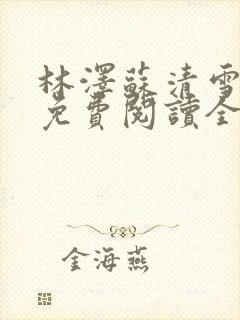 林澤蘇清雪
免費閱讀全
金海燕